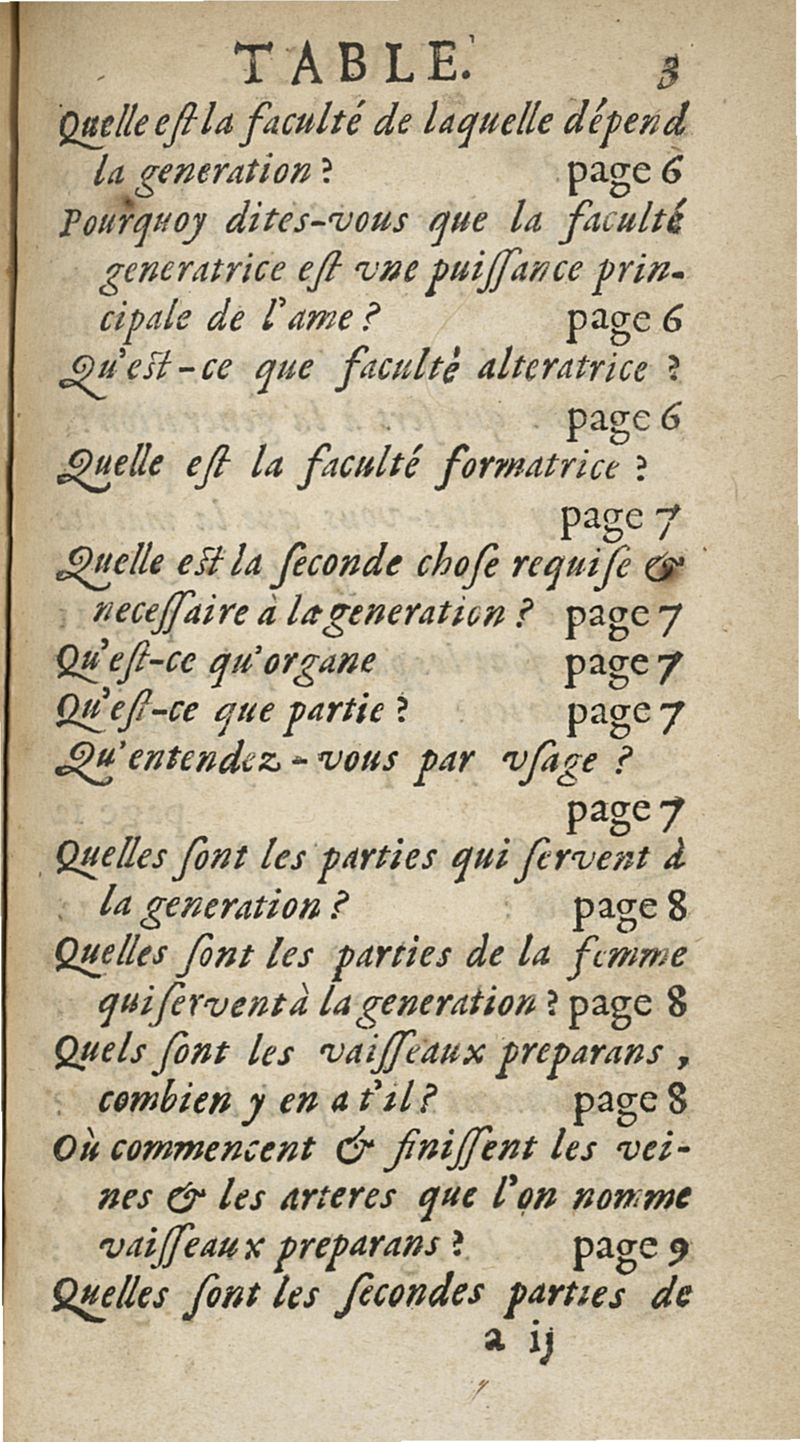 TABLE. 3
Quelle eſt la faculté de laquelle dépend
la generation ? page 6
Pourquoy dites-vous que la faculté
generatrice eſt vne puiſſance prin-
cipale de l'ame ? page 6
Qu'eſt-ce que faculté alteratrice ?
page 6
Quelle eſt la faculté formatrice ?
page 7
Quelle eſt la ſeconde choſe requiſe &
neceſſaire à la generation ? page 7
Qu'eſt-ce qu'organe page 7
Qu'eſt-ce que partie ? page 7
Qu'entendez-vous par vſage ?
page 7
Quelles ſont les parties qui ſervent à
la generation ? page 8
Quelles ſont les parties de la femme
qui ſervent à la generation ? page 8
Quels ſont les vaiſſeaux preparans ,
combien y en a t'il ? page 8
Où commencent & finiſſent les vei-
nes & les arteres que l'on nomme
vaiſſeaux preparans ? page 9
Quelles ſont les ſecondes parties de
a ij